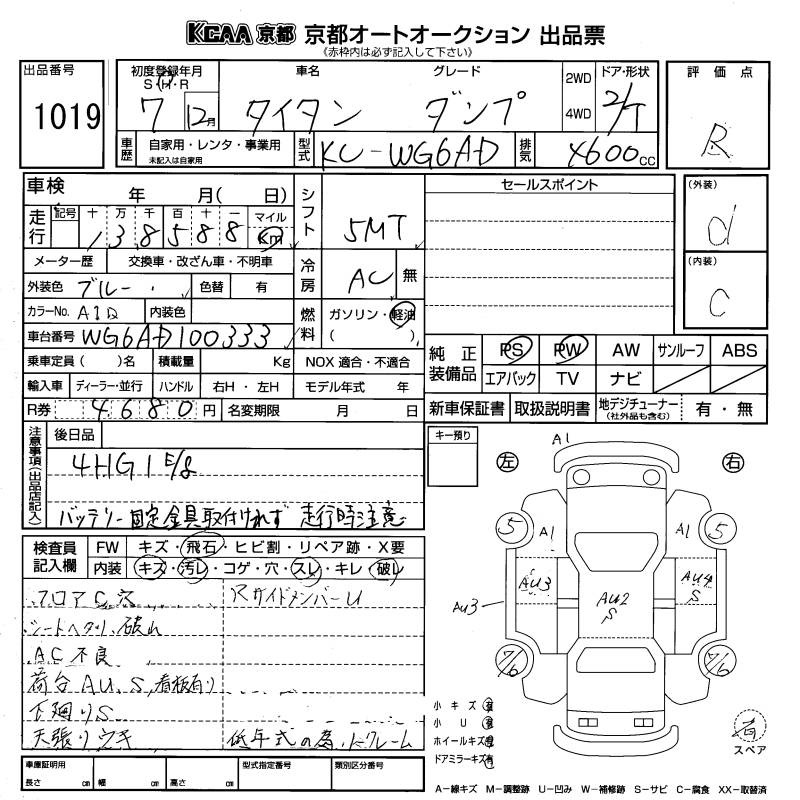 KCAA 京都 京都オートオークション 出品票
(赤枠内は必ず記入して下さい)
出品番号 1019
初度登録年月 S・H・R 7 12月
車名 タイタン
グレード ダンプ
2WD 4WD
ドア・形状 2/T
評価点 R
車歴 自家用・レンタ・事業用 未記入は自家用
型式 KC-WG6AD
排気 4600cc
車検 年 月( 日)
シフト 5MT
セールスポイント
(外装) d
走行 記号 十 万 千 百 十 一 マイル km
138588
メーター歴 交換車・改ざん車・不明車
冷房 AC 無
(内装) C
外装色 ブルー 色替 有
カラーNo. A1D 内装色
燃料 ガソリン・軽油
( )
車台番号 WG6AD100333
乗車定員( )名 積載量 Kg NOX 適合・不適合
純正装備品 PS PW AW サンルーフ ABS
エアバック TV ナビ
輸入車 ディーラー・並行 ハンドル 右H・左H モデル年式 年
R券 4680円 名変期限 月 日
新車保証書 取扱説明書 地デジチューナー(社外品も含む) 有・無
注意事項(出品店記入)
後日品
4HG1 E/g
バッテリー固定金具取付けれず 走行時注意
キー預り
左 右
A1
5 A1 A1 5
AU3 AU4 S
AU3 AU2 S
7/6 7/6
検査員記入欄 FW キズ・飛石・ヒビ割・リペア跡・X要
内装 キズ・汚レ・コゲ・穴・スレ・キレ・破レ
フロアC穴 Rサイドメンバー U
シートヘタリ、破れ
AC不良
荷台AU、S、看板有り
下廻りS
天張りウキ 低年式の為、ノークレーム
小キズ有
小U有
ホイールキズ有
ドアミラーキズ有
有
スペア
車庫証明用 長さ cm 幅 cm 高さ cm
型式指定番号 類別区分番号
A−線キズ M−調整跡 U−凹み W−補修跡 S−サビ C−腐食 XX−取替済